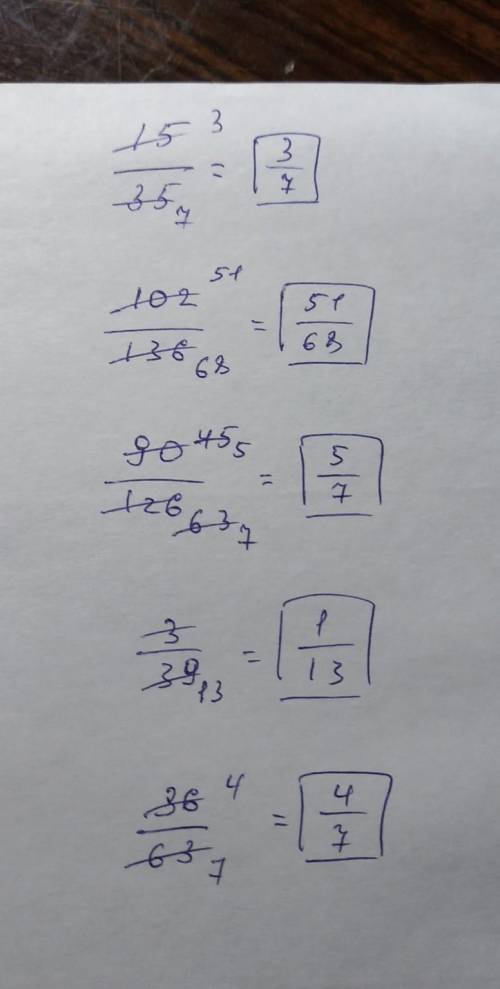 15 3
35 7 = 3/7
102 51
136 68 = 51/68
90 45 5
126 63 7 = 5/7
3
39 13 = 1/13
36 4
63 7 = 4/7